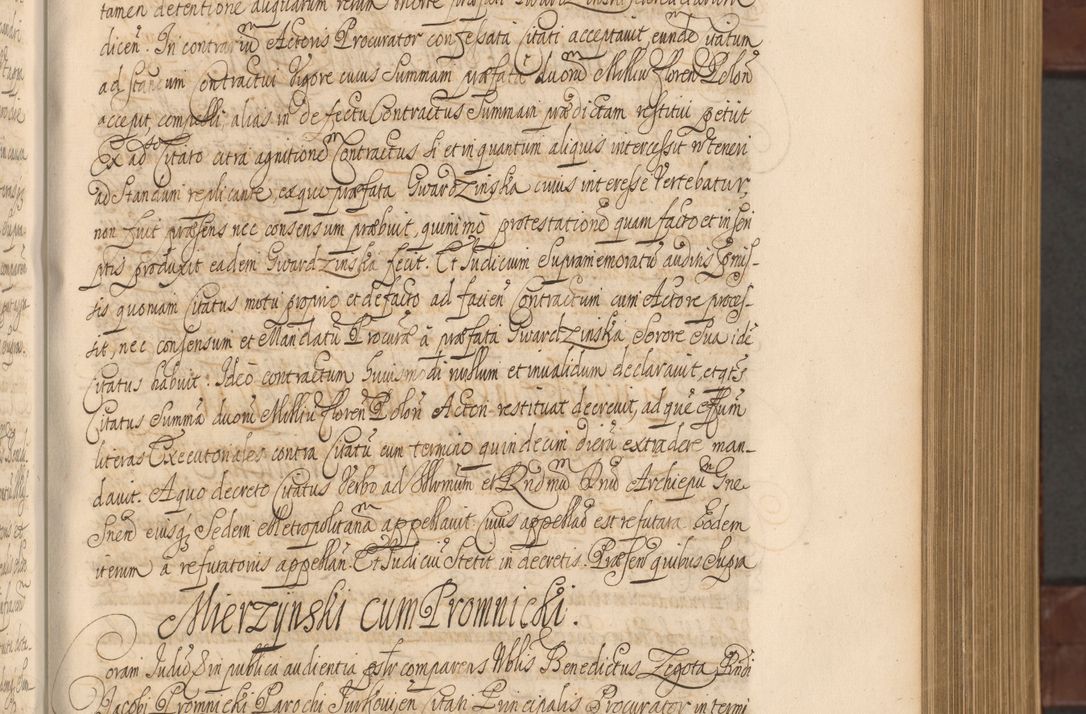 tamen detentione aliquarum rerum morte præfati
dicen. In contrariũ Actoris Procurator confessata Citati acceptavit, eundẽ vatum
ad standum Contractui Vigore cuius Summam præfatã duorũ Milliũ floren Polon
accepit, compelli, alias in defectu Contractus Summam prædictam restitui petiit
Ex adverso Citato citra agnitionẽ Contractus si et in quantum aliquis intercessit nõ teneri
ad standum replicante, ex quo præfata Gwardzinska cuius interesse Vertebatur,
non fuit præsens nec consensum præbuit, quinimò protestationẽ quam facto et in scri
ptis produxit eadem Gwardzinska fecit. Et Iudicium Supramemoratũ auditis præmis-
sis quoniam Citatus motu proprio et de facto ad facien Contractum cum Actore proces-
sit, nec consensum et Mandatũ Procuræ à præfata Gwardzinska Sorore Sua idẽ
Citatus habuit. Ideò contractum huiusmodi nullum et invalidum declaravit, et qts
Citatus Summã duorũ Milliũ floren Polon Actori restituat decrevit, ad quẽ effum
literas Executoriales contra Citatũ cum termino quindecim dierũ extradere man-
davit. A quo decreto Citatus Verbo ad Illmum et Rndmũ Dnũ Archiepũ Gne
Snen eiusq Sedem Metropolitanã appellavit. Cuius appellao est refutata. Eodem
iterum à refutatoriis appellan. Et Iudiciũ Stetit in decretis. Præsen quibus Supra
Mierzynski cum Promnicki.
Coram Iudio in publica audientia psonlr comparens Nblis Benedictus Zegota Rndi
Jacobi Promnicki Parochi Citati Principalis Procurator in termi